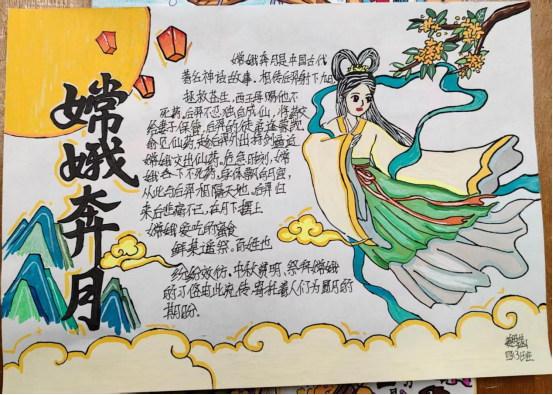 嫦娥奔月
嫦娥奔月是中国古代
著名神话故事。相传后羿射下九日
拯救苍生，西王母赐他不
死药，后羿不忍独自成仙，将药交
给妻子保管。后羿的徒弟逢蒙
仙药，趁后羿外出持剑逼迫
嫦娥交出仙药，危急时刻，嫦
娥吞下不死药，身体飘向月宫，
从此与后羿相隔天地。后羿归
来后悲痛不已，在月下摆上
嫦娥爱吃的蜜食
鲜果遥祭。百姓也
纷纷效仿，中秋赏月、祭拜嫦娥
的习俗由此流传，寄托着人们对团圆的
期盼。
四3班